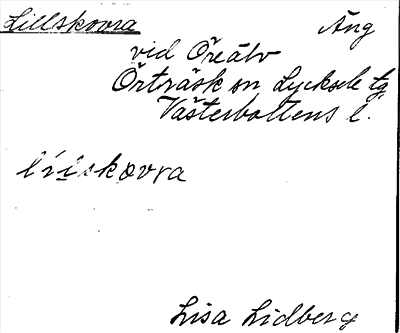 Lillskovra Äng
vid Öreälv
Örträsk sn Lycksele tg
Västerbottens l.
lìiskovra
Lisa Lidberg